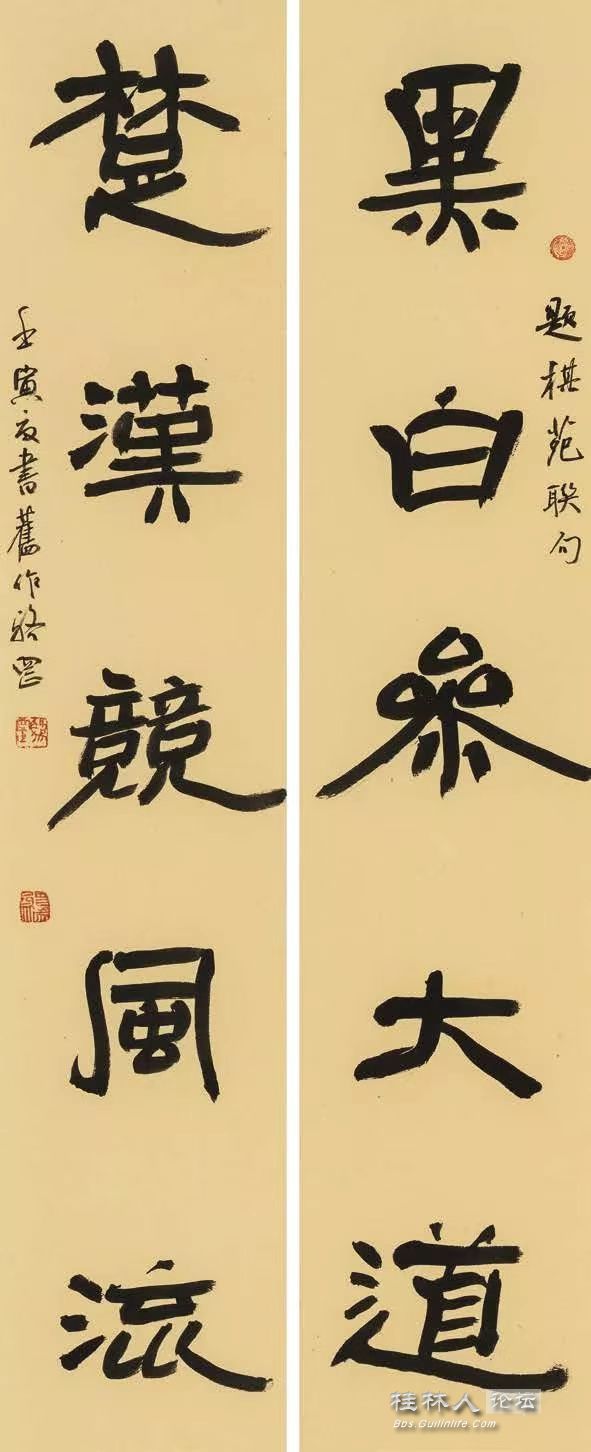 黑白參大道
題棋苑聯句
楚漢競風流
壬寅夏書舊作 駱罡
桂林人论坛
Bbs.Guilinlife.Com